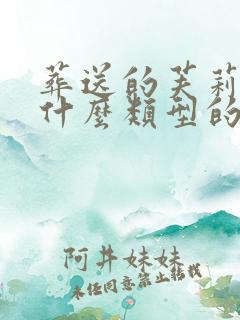 葬送的芙莉
什麼類型的
阿井妹妹
未經同意禁止轉載